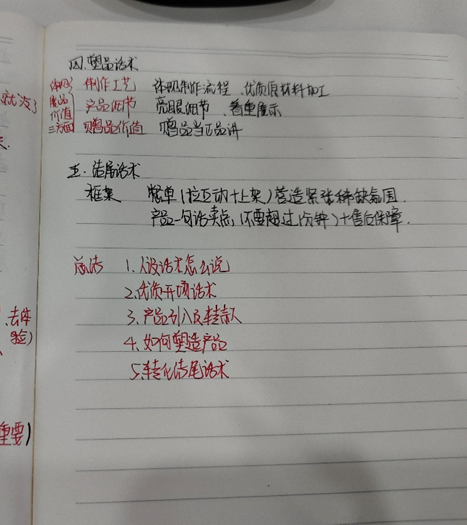 四、塑品话术
体现产品价值三方面
制作工艺 体现制作流程、优质原材料加工
产品细节 亮眼细节、着重展示
赠品价值 赠品当正品讲
五、结尾话术
框架 憋单(拉互动+上架)营造紧张稀缺氛围
产品一句话卖点,(不要超过1分钟)+售后保障.
总结 1.人设话术怎么说
2.优质开场话术
3.产品引入及转款
4.如何塑造产品
5.转化结尾话术
去体
验)
重要)